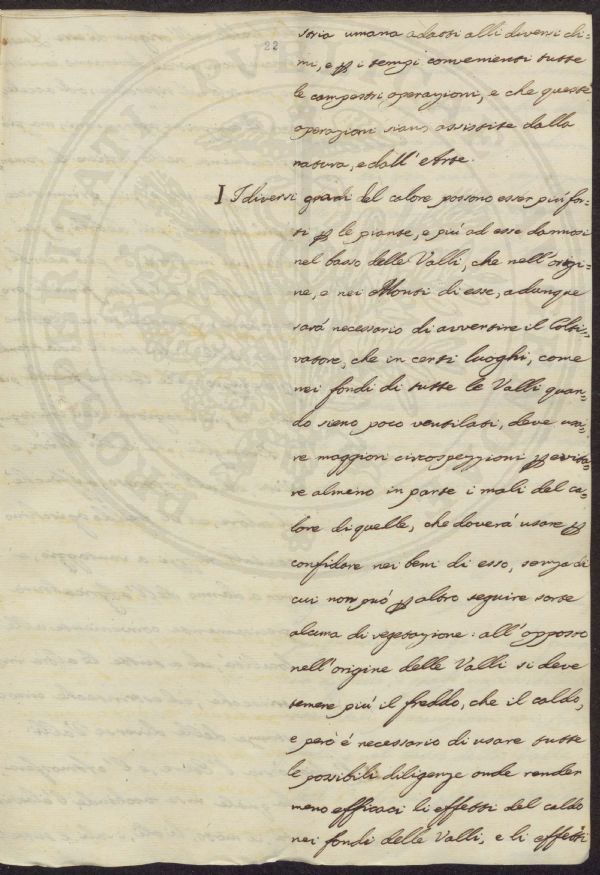 22
stria umana adatti alli diversi cli=
mi, e ꝑ i tempi convenienti tutte
le campestri operazioni, e che queste
operazioni siano assistite dalla
natura, e dall' Arte.
I I diversi gradi del calore possono esser piú for=
ti ꝑ le piante, e piú ad esse dannosi
nel basso delle Valli, che nell'origi=
ne, e nei Monti di esse, adunque
sará necessario di avvertire il Colti=
vatore, che in certi luoghi, come
nei fondi di tutte le Valli quan=
do sieno poco ventilati, deve usa=
re maggiori circospezzioni ꝑ evita=
re almeno in parte i mali del ca=
lore di quelle, che doverá usare ꝑ
confidare nei beni di esso, senza di
cui non puó ꝑ altro seguire sorte
alcuna di vegetazione: all'opposto
nell'origine delle Valli si deve
temere piú il freddo, che il caldo,
e peró é necessario di usare tutte
le possibili diligenze onde render
meno efficaci li effetti del caldo
nei fondi delle Valli, e li effetti
PROSPERITATI PVBLICAE